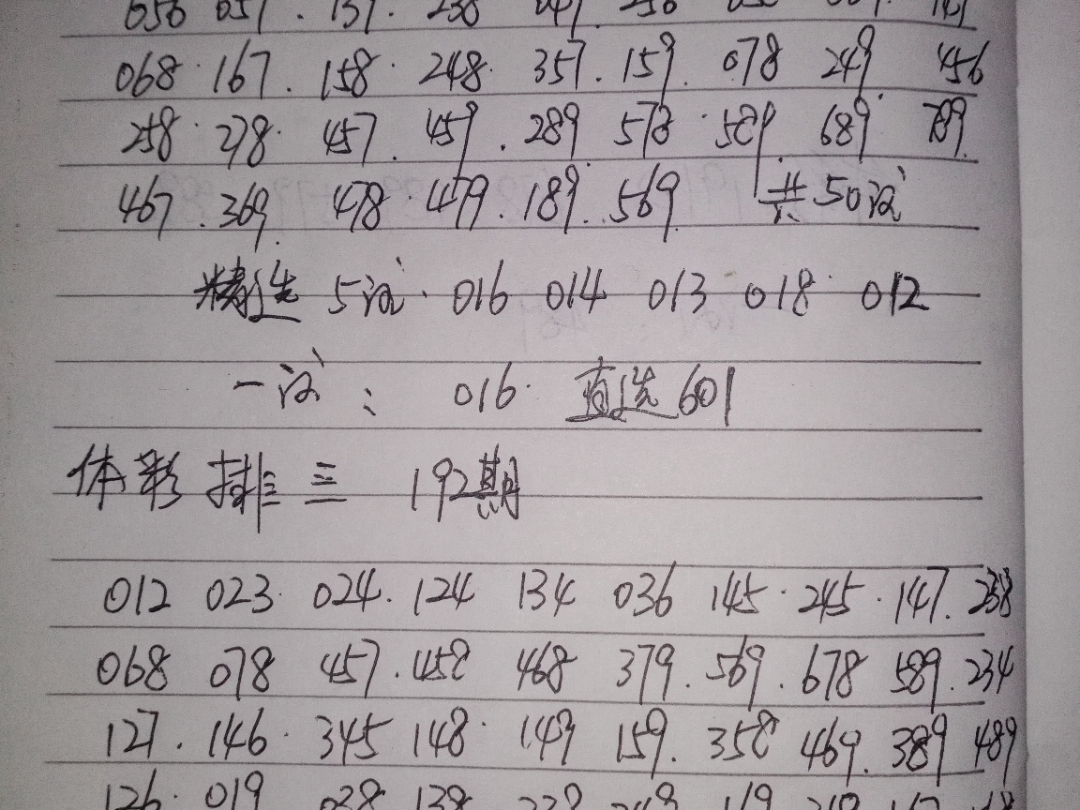 056 057 · 137 · 238
068 · 167 . 158 · 248 · 357 . 159 . 078 249 456
258 · 278 · 457 . 459 . 289 . 578 · 589 . 689 789.
467 . 369 . 478 · 479 . 189 . 569 . 共50注
精选 5注 · 016 014 013 018 · 012
一注 : 016 · 直选601
体彩 排三 192期
012 023 · 024 . 124 134 036 145 · 245 · 147 . 238
068 078 457 . 458 468 379 . 569 . 678 589 . 234
127 . 146 · 345 148 · 149 159 . 358 469 . 389 489
126 · 019 038 138 238 249